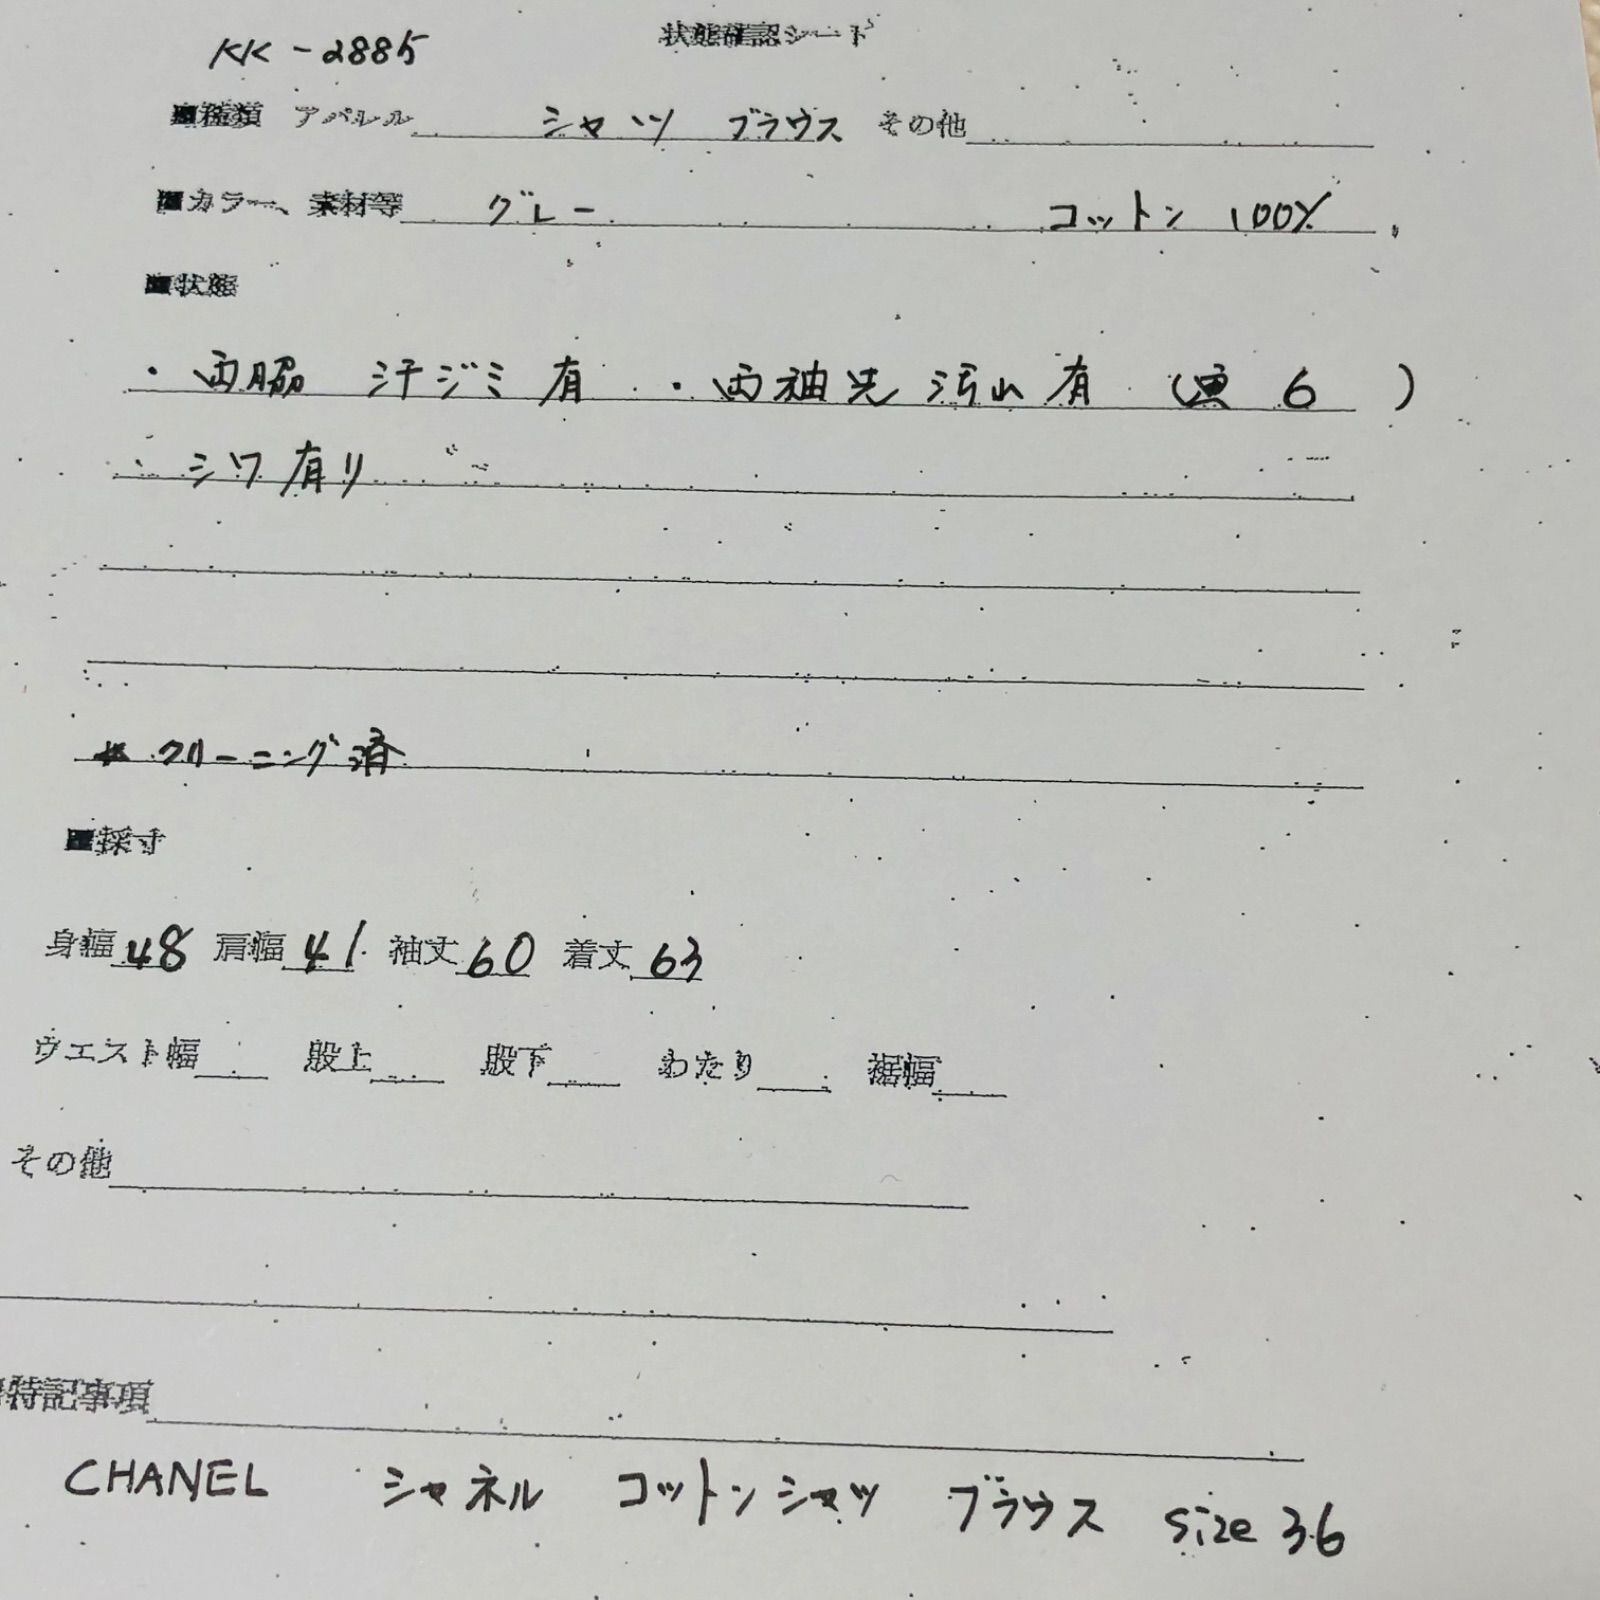 状態確認シート
KK-2885
■種類 アパレル シャツ ブラウス その他
■カラー、素材等 グレー コットン 100%
■状態
・両脇 汗ジミ有 ・両袖先 汚れ有 ( 6 )
・シワ有り
* クリーニング済
■採寸
身幅 48 肩幅 41 袖丈 60 着丈 63
ウエスト幅 股上 股下 わたり 裾幅
その他
■特記事項
CHANEL シャネル コットンシャツ ブラウス size 36